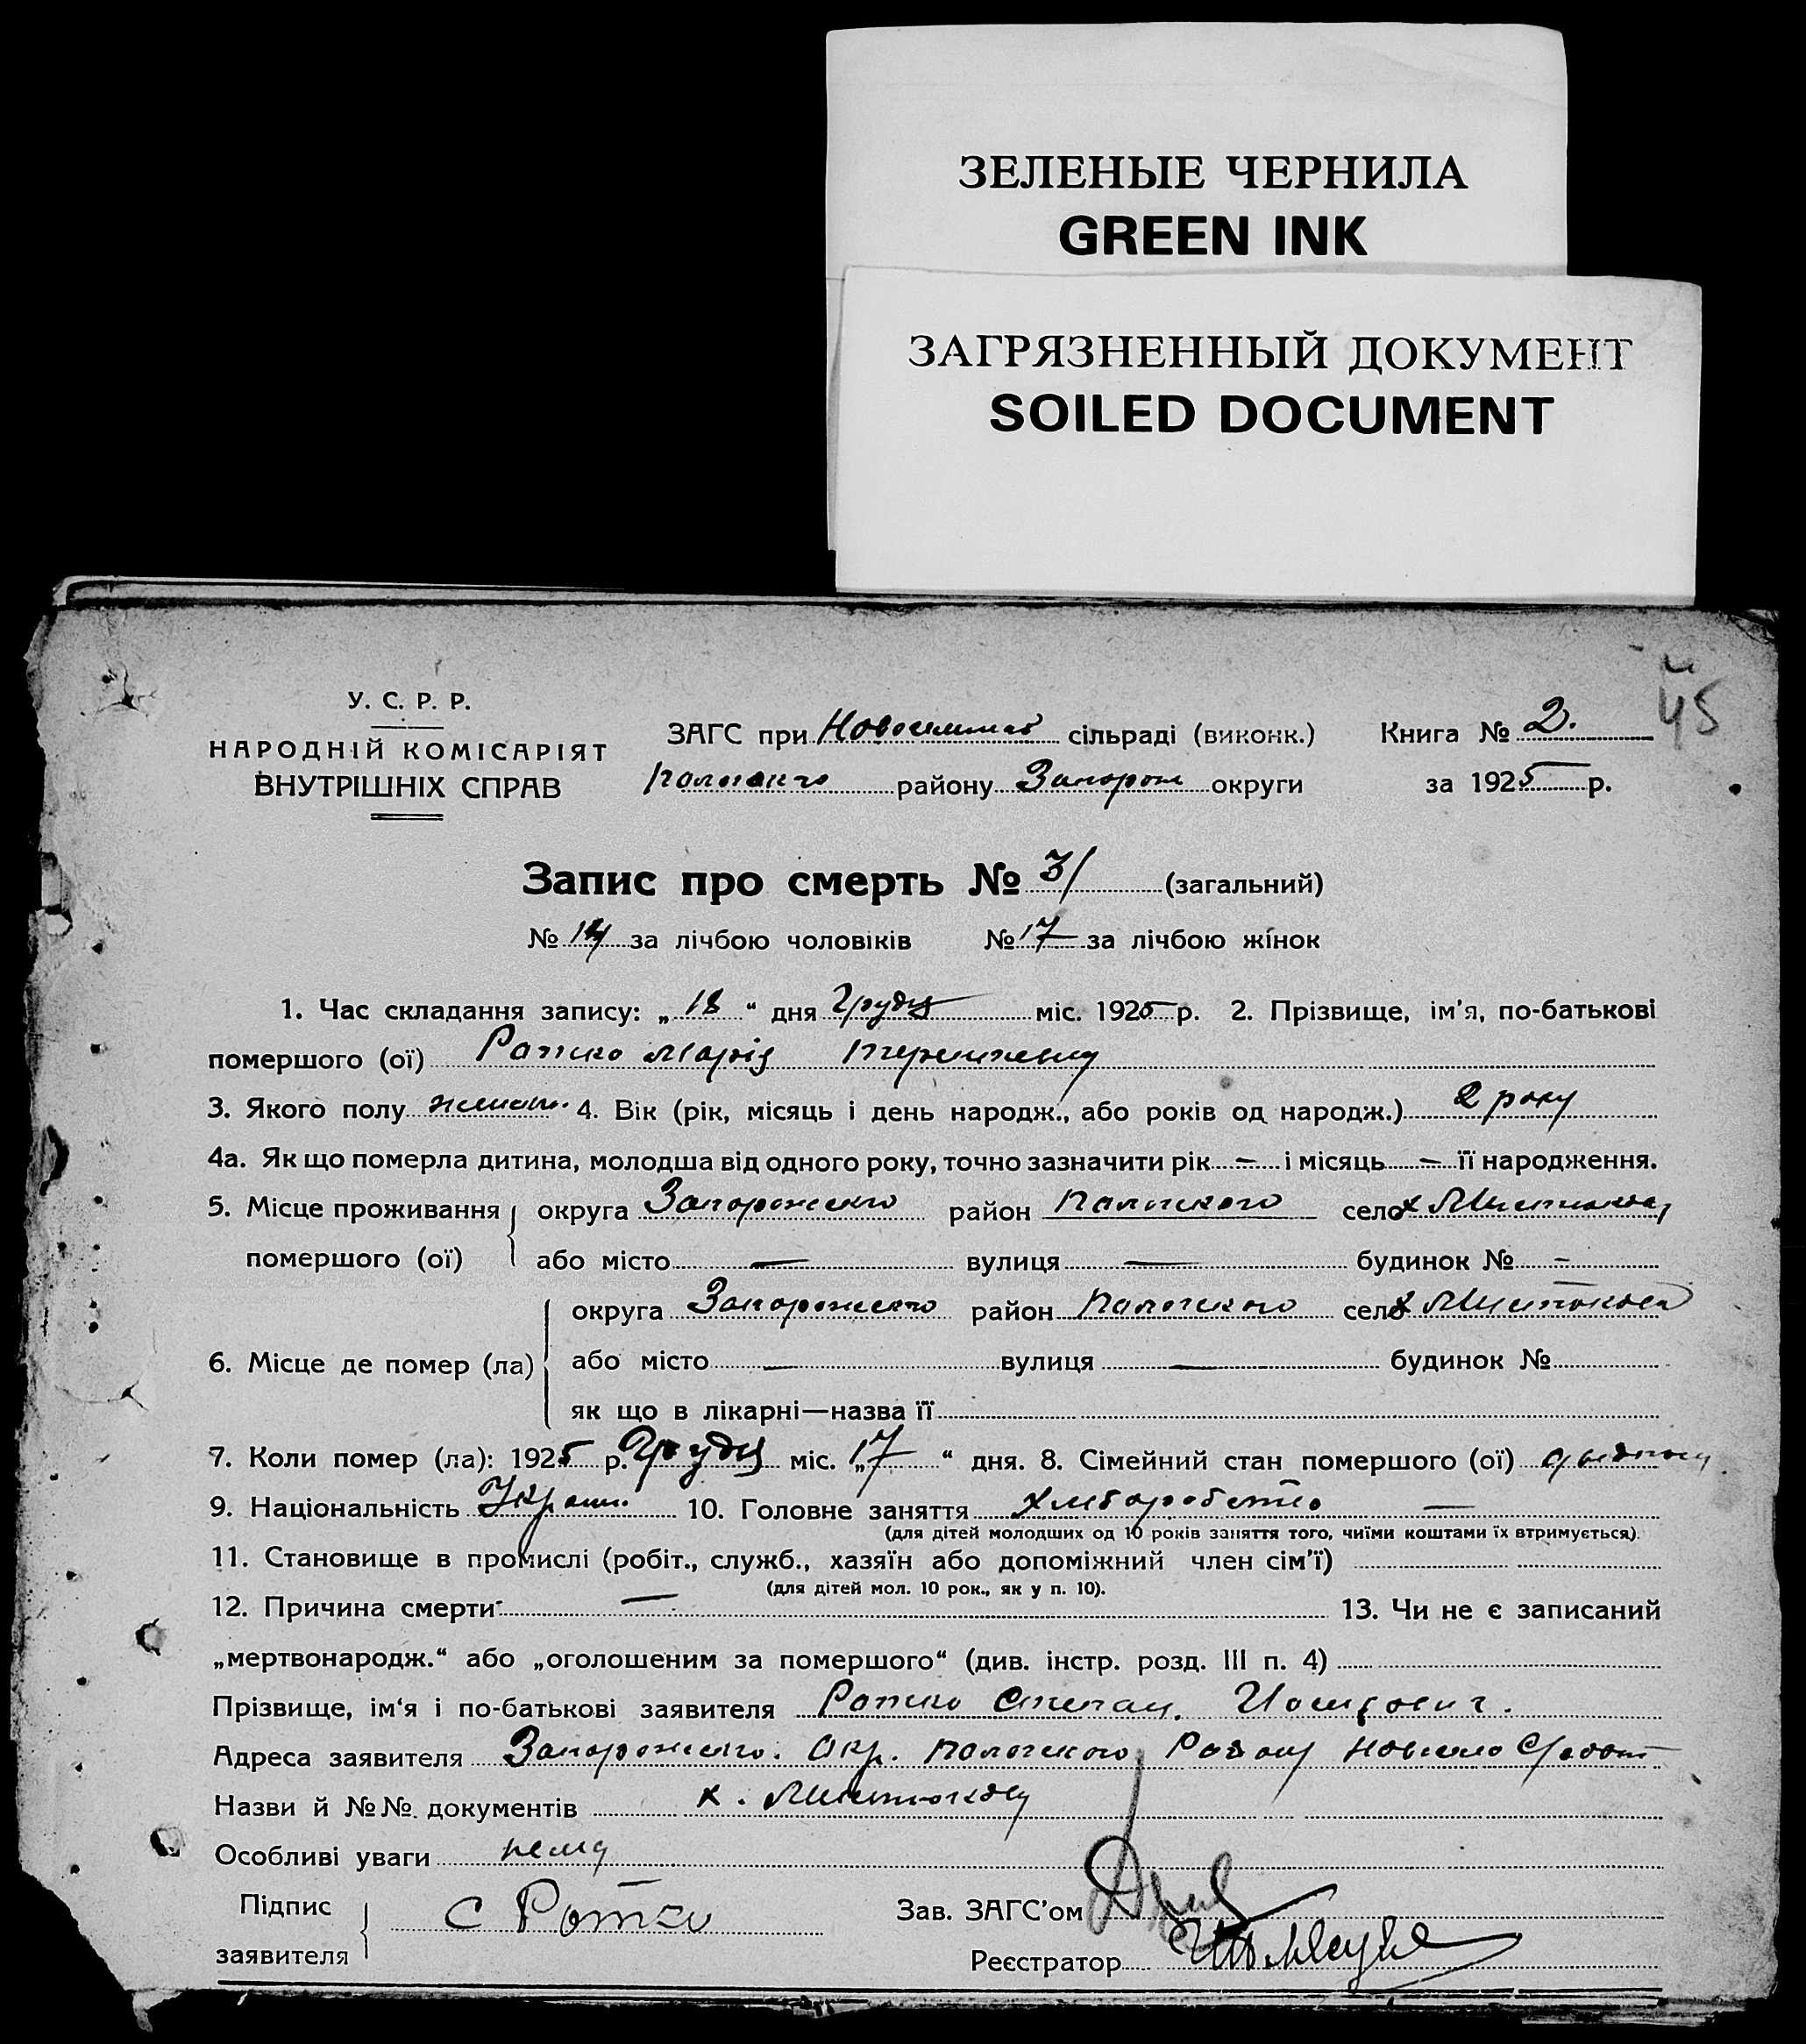 ЗЕЛЕНЫЕ ЧЕРНИЛА
GREEN INK
ЗАГРЯЗНЕННЫЙ ДОКУМЕНТ
SOILED DOCUMENT
45
У. С. Р. Р.
НАРОДНІЙ КОМІСАРІЯТ
ВНУТРІШНІХ СПРАВ
ЗАГС при сільраді (виконк.)
району Запорож округи
Книга № 2.
за 1925 р.
Запис про смерть № 31 (загальний)
№ 14 за лічбою чоловіків № 17 за лічбою жінок
1. Час складання запису: „ 18 “ дня Грудня міс. 1925 р. 2. Прізвище, ім'я, по-батькові
помершого (ої) Ратко Марія
3. Якого полу 4. Вік (рік, місяць і день народж., або років од народж.) 2 року
4а. Як що померла дитина, молодша від одного року, точно зазначити рік — і місяць — її народження.
5. Місце проживання помершого (ої) округа Запорожского район Пологского село х
або місто — вулиця — будинок № —
6. Місце де помер (ла) округа Запорожского район Пологского село х
або місто — вулиця — будинок №
як що в лікарні—назва її
7. Коли помер (ла): 1925 р. Грудня міс. „17 “ дня. 8. Сімейний стан помершого (ої)
9. Національність Украин. 10. Головне заняття хлиборобство —
(для дітей молодших од 10 років заняття того, чиїми коштами їх втримується).
11. Становище в промислі (робіт., служб., хазяїн або допоміжний член сім'ї)
(для дітей мол. 10 рок., як у п. 10).
12. Причина смерти — 13. Чи не є записаний
„мертвонародж.“ або „оголошеним за помершого“ (див. інстр. розд. III п. 4)
Прізвище, ім'я і по-батькові заявителя Ратко Степан.
Адреса заявителя Запорожского. Окр. Пологского Району
Назви й №№ документів х.
Особливі уваги нема
Підпис заявителя С Ратко
Зав. ЗАГС'ом
Реєстратор